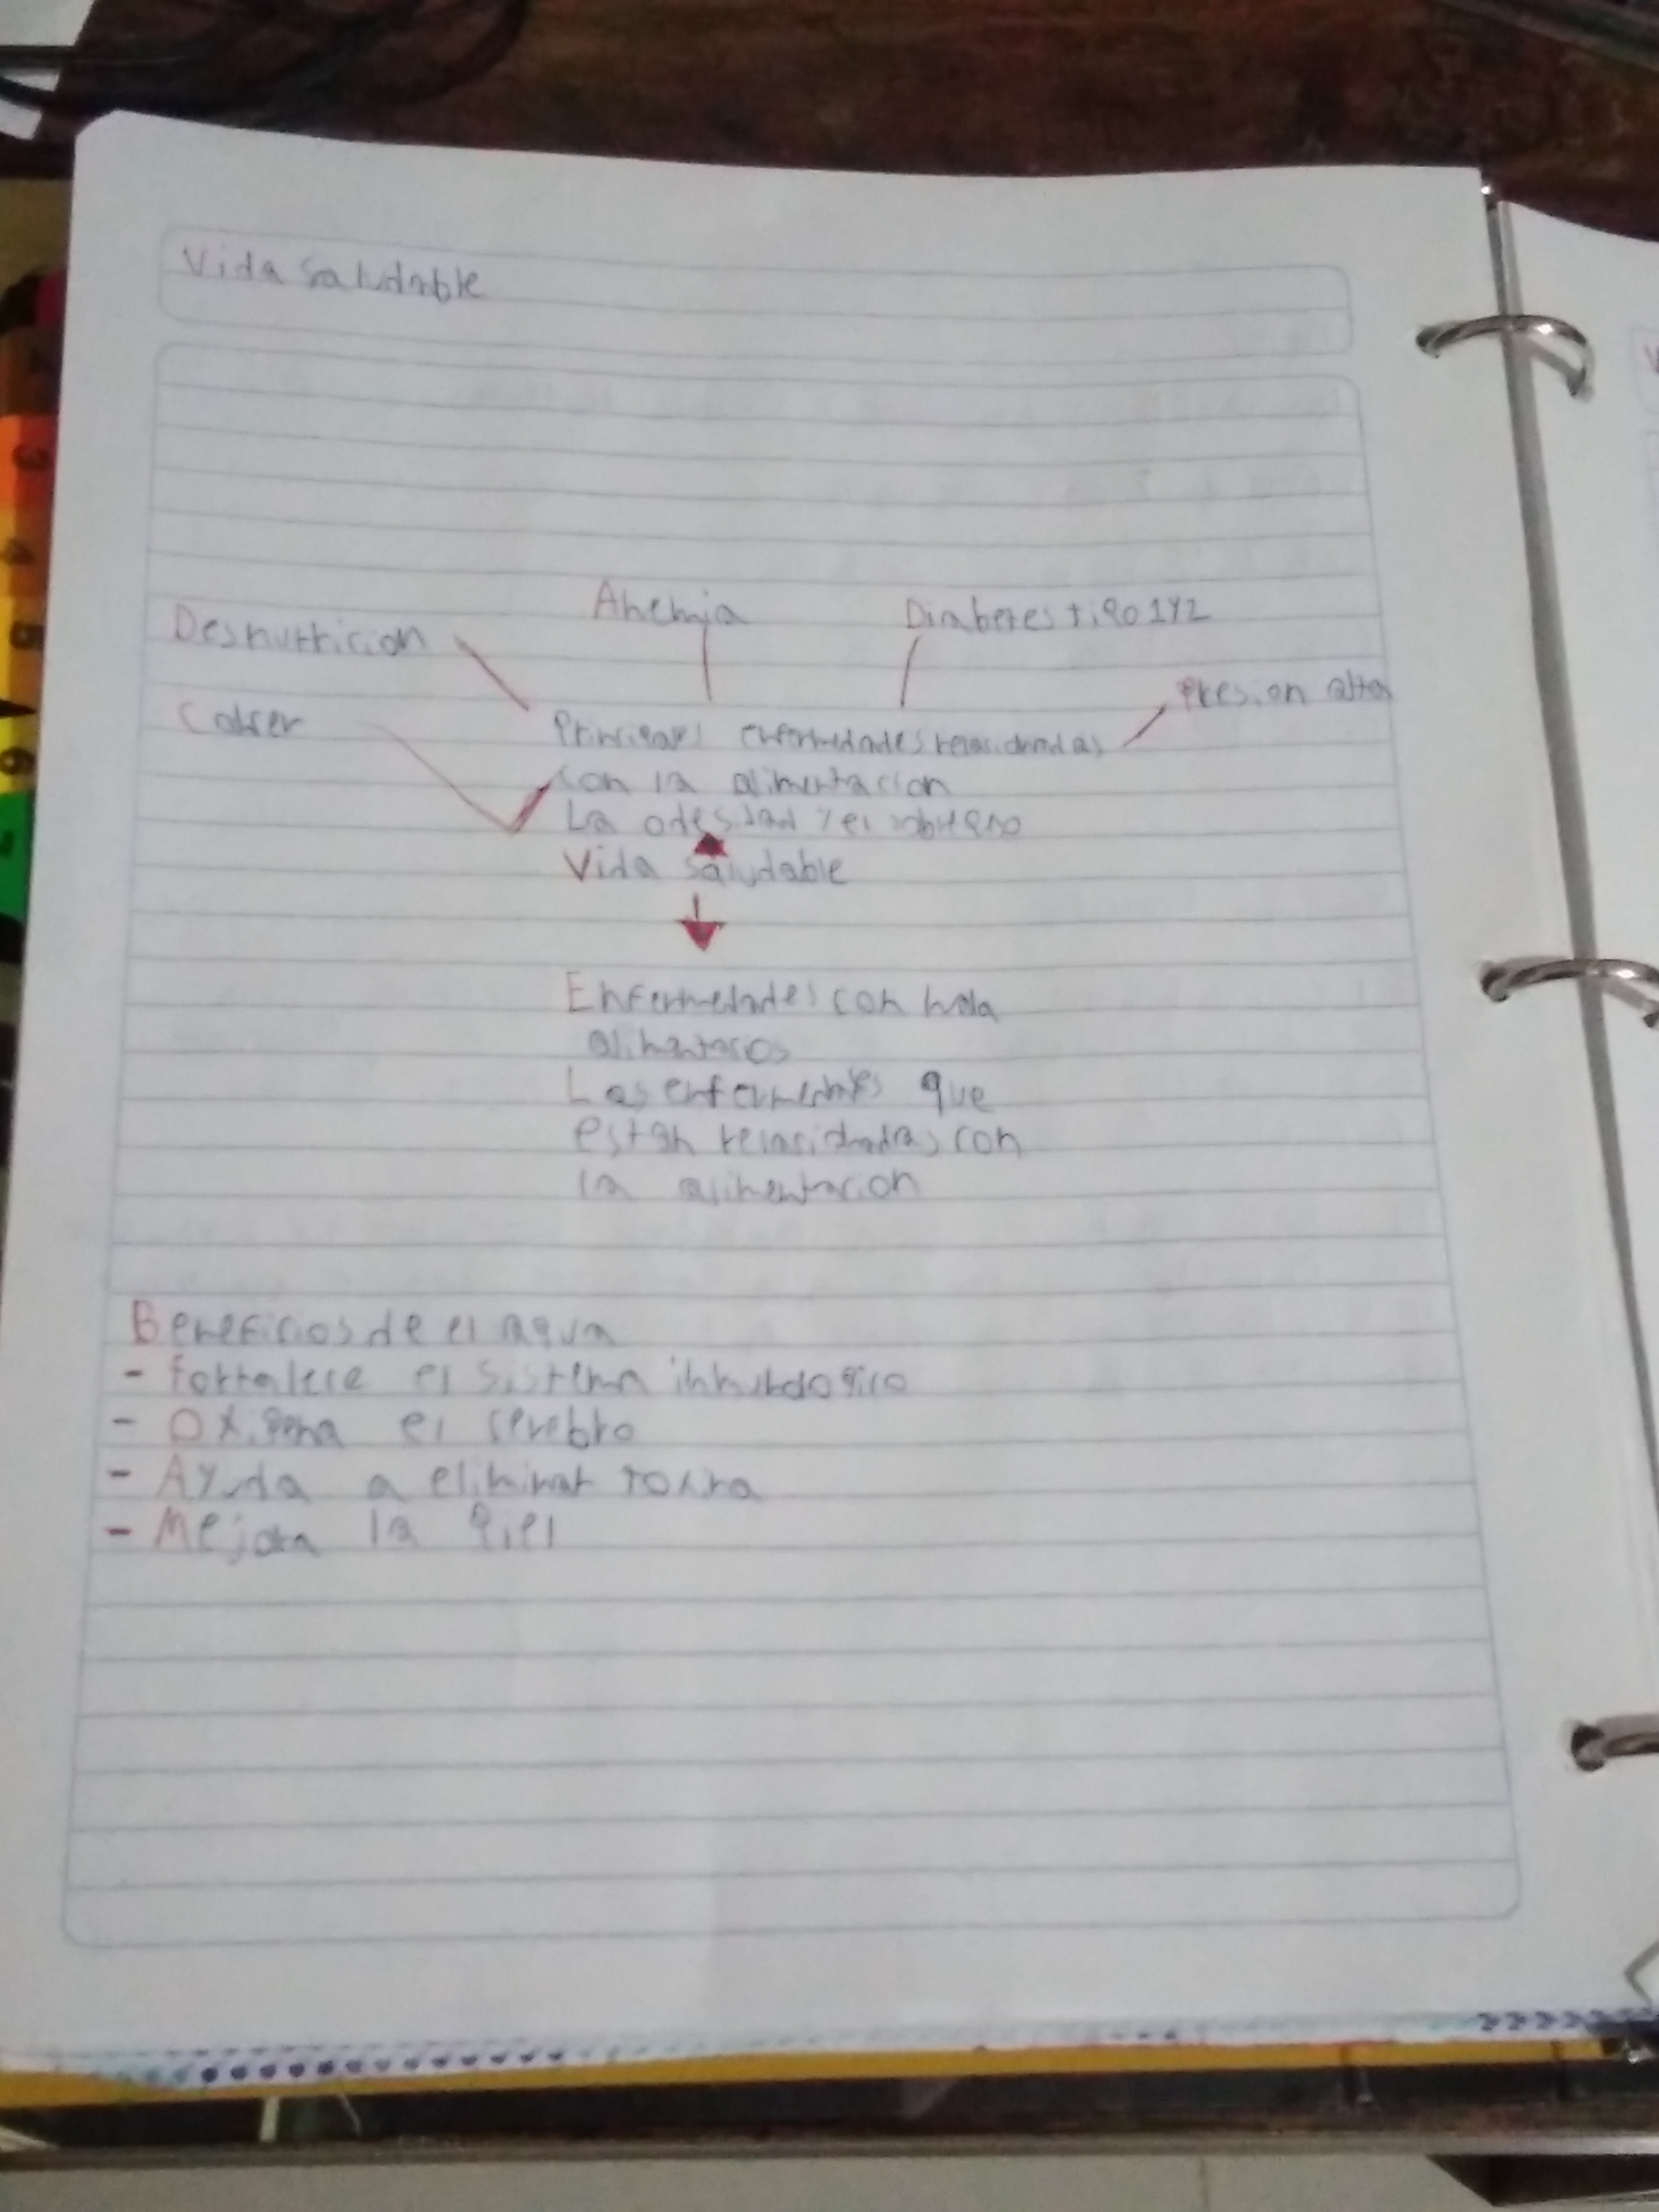 Vida Saludable
Anemia
Diabetes tipo 1 y 2
Desnutricion
Presion alta
Canser
Principales enfermedades relasionadas
con la alimentacion
La odesidad y el sobrepeso
Vida saludable
Enfermedades con mala
alimentasios
Las enfermedades que
estan relasionadas con
la alimentacion
Beneficios de el agua
- fortalece el sistema inmunologico
- Oxigena el serebro
- Ayuda a eliminar toxina
- Mejora la piel
3
4
5
6
7